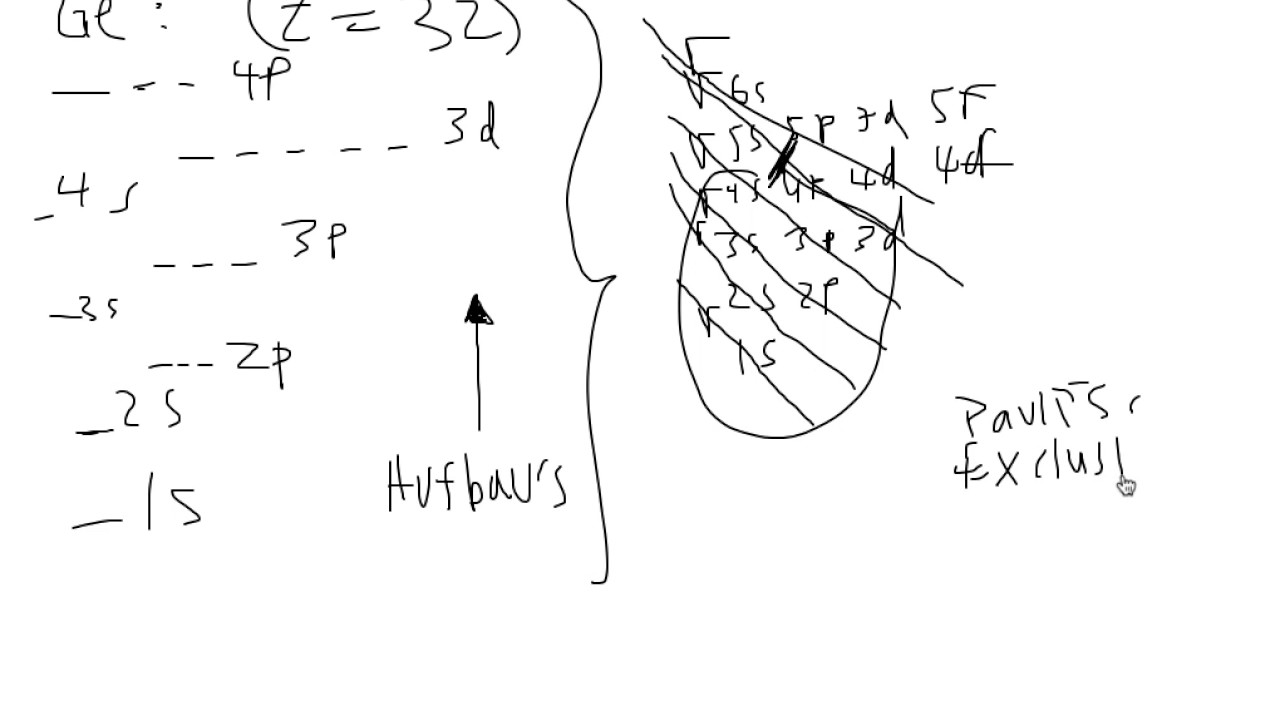 Ge: (Z = 32)
4p
3d
4s
3p
3s
2p
2s
1s
Aufbau's
6s
5p 7d 5F
5s
4d 4d
4s
3s 3p 3d
2s 2p
1s
Pauli's
Exclusi